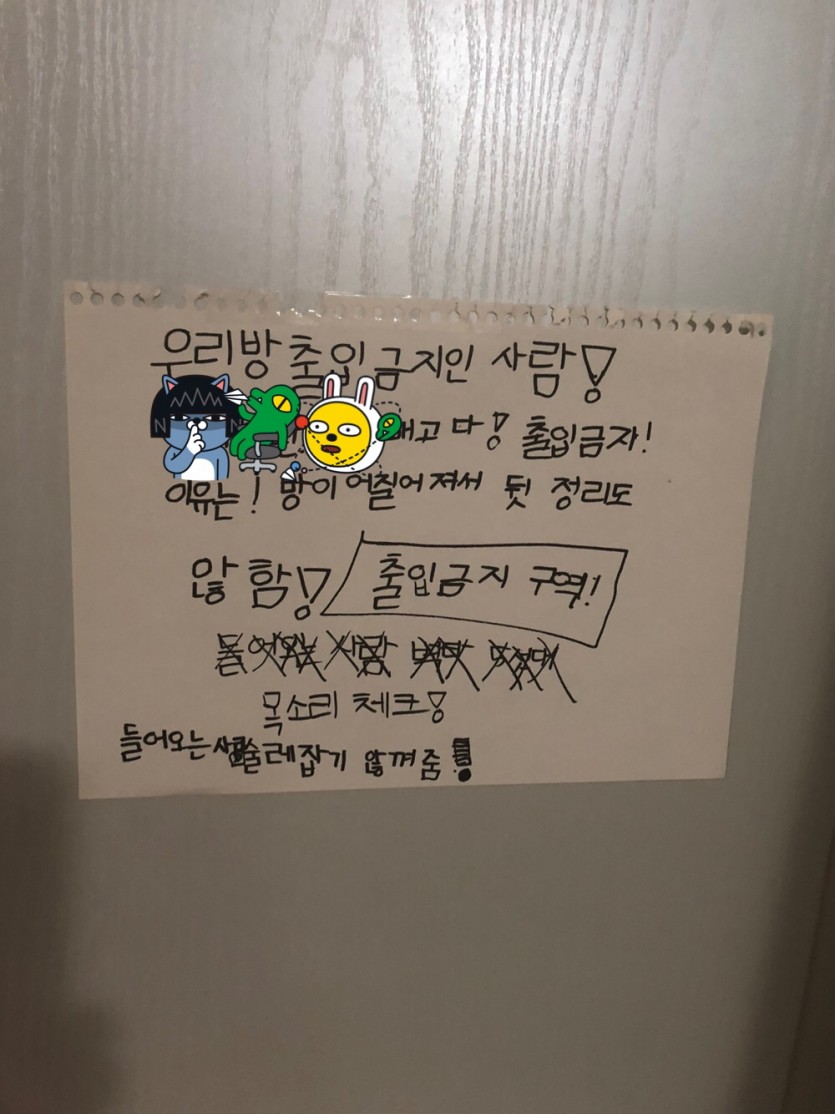 우리방 출입금지인 사람!
빼고 다! 출입금자!
이유는! 방이 어질어져서 뒷 정리도
않 함! 출입금지 구역!
목소리 체크!
들어오는 사람 술레잡기 않껴줌!